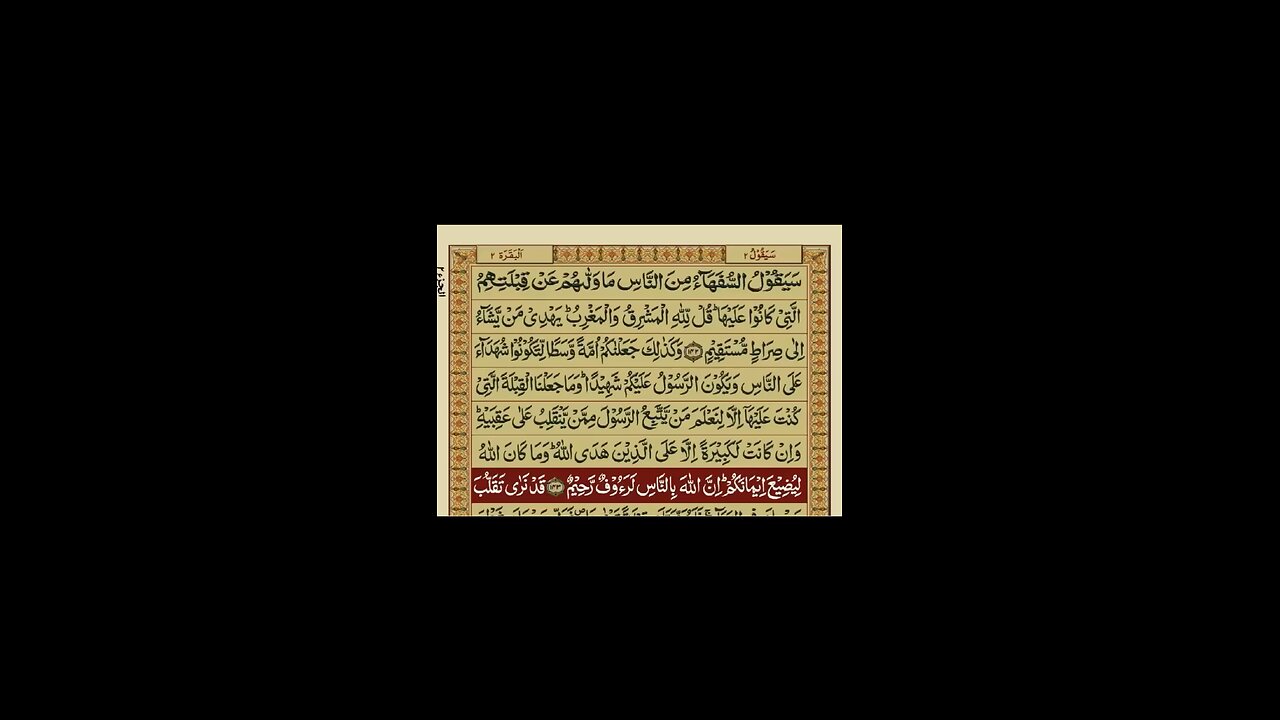 سَيَقُوْلُ ٢
اَلْبَقَرَة ٢
الجزء ٢
سَيَقُوْلُ السُّفَهَآءُ مِنَ النَّاسِ مَا وَلّٰىهُمْ عَنْ قِبْلَتِهِمُ
الَّتِيْ كَانُوْا عَلَيْهَا ؕ قُلْ لِّلّٰهِ الْمَشْرِقُ وَالْمَغْرِبُ ؕ يَهْدِيْ مَنْ يَّشَآءُ
اِلٰى صِرَاطٍ مُّسْتَقِيْمٍ ۝١٤٢ وَكَذٰلِكَ جَعَلْنٰكُمْ اُمَّةً وَّسَطًا لِّتَكُوْنُوْا شُهَدَآءَ
عَلَى النَّاسِ وَيَكُوْنَ الرَّسُوْلُ عَلَيْكُمْ شَهِيْدًا ؕ وَمَا جَعَلْنَا الْقِبْلَةَ الَّتِيْ
كُنْتَ عَلَيْهَاۤ اِلَّا لِنَعْلَمَ مَنْ يَّتَّبِعُ الرَّسُوْلَ مِمَّنْ يَّنْقَلِبُ عَلٰى عَقِبَيْهِ ؕ
وَاِنْ كَانَتْ لَكَبِيْرَةً اِلَّا عَلَى الَّذِيْنَ هَدَى اللّٰهُ ؕ وَمَا كَانَ اللّٰهُ
لِيُضِيْعَ اِيْمَانَكُمْ ؕ اِنَّ اللّٰهَ بِالنَّاسِ لَرَءُوْفٌ رَّحِيْمٌ ۝١٤٣ قَدْ نَرٰى تَقَلُّبَ